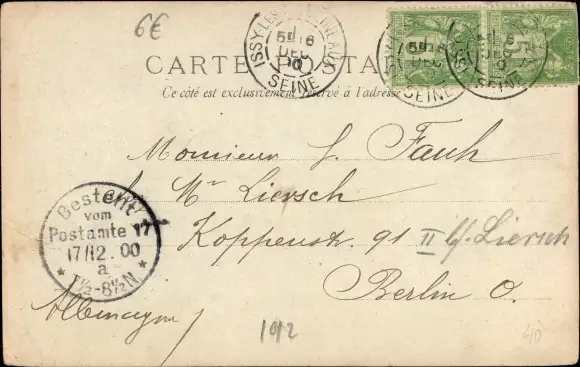 6€
ISSY-LES-MOULINEAUX
5E 16
DEC
00
SEINE
CARTE POSTALE
Ce côté est exclusivement réservé à l'adresse
Monsieur J. Fauh
Mr Liersch
Koppenstr. 91 II b/Liersch
Berlin O.
Allemagne
Bestellt
vom
Postamte 17
17/12.00
a
7½-8½N
1912
40